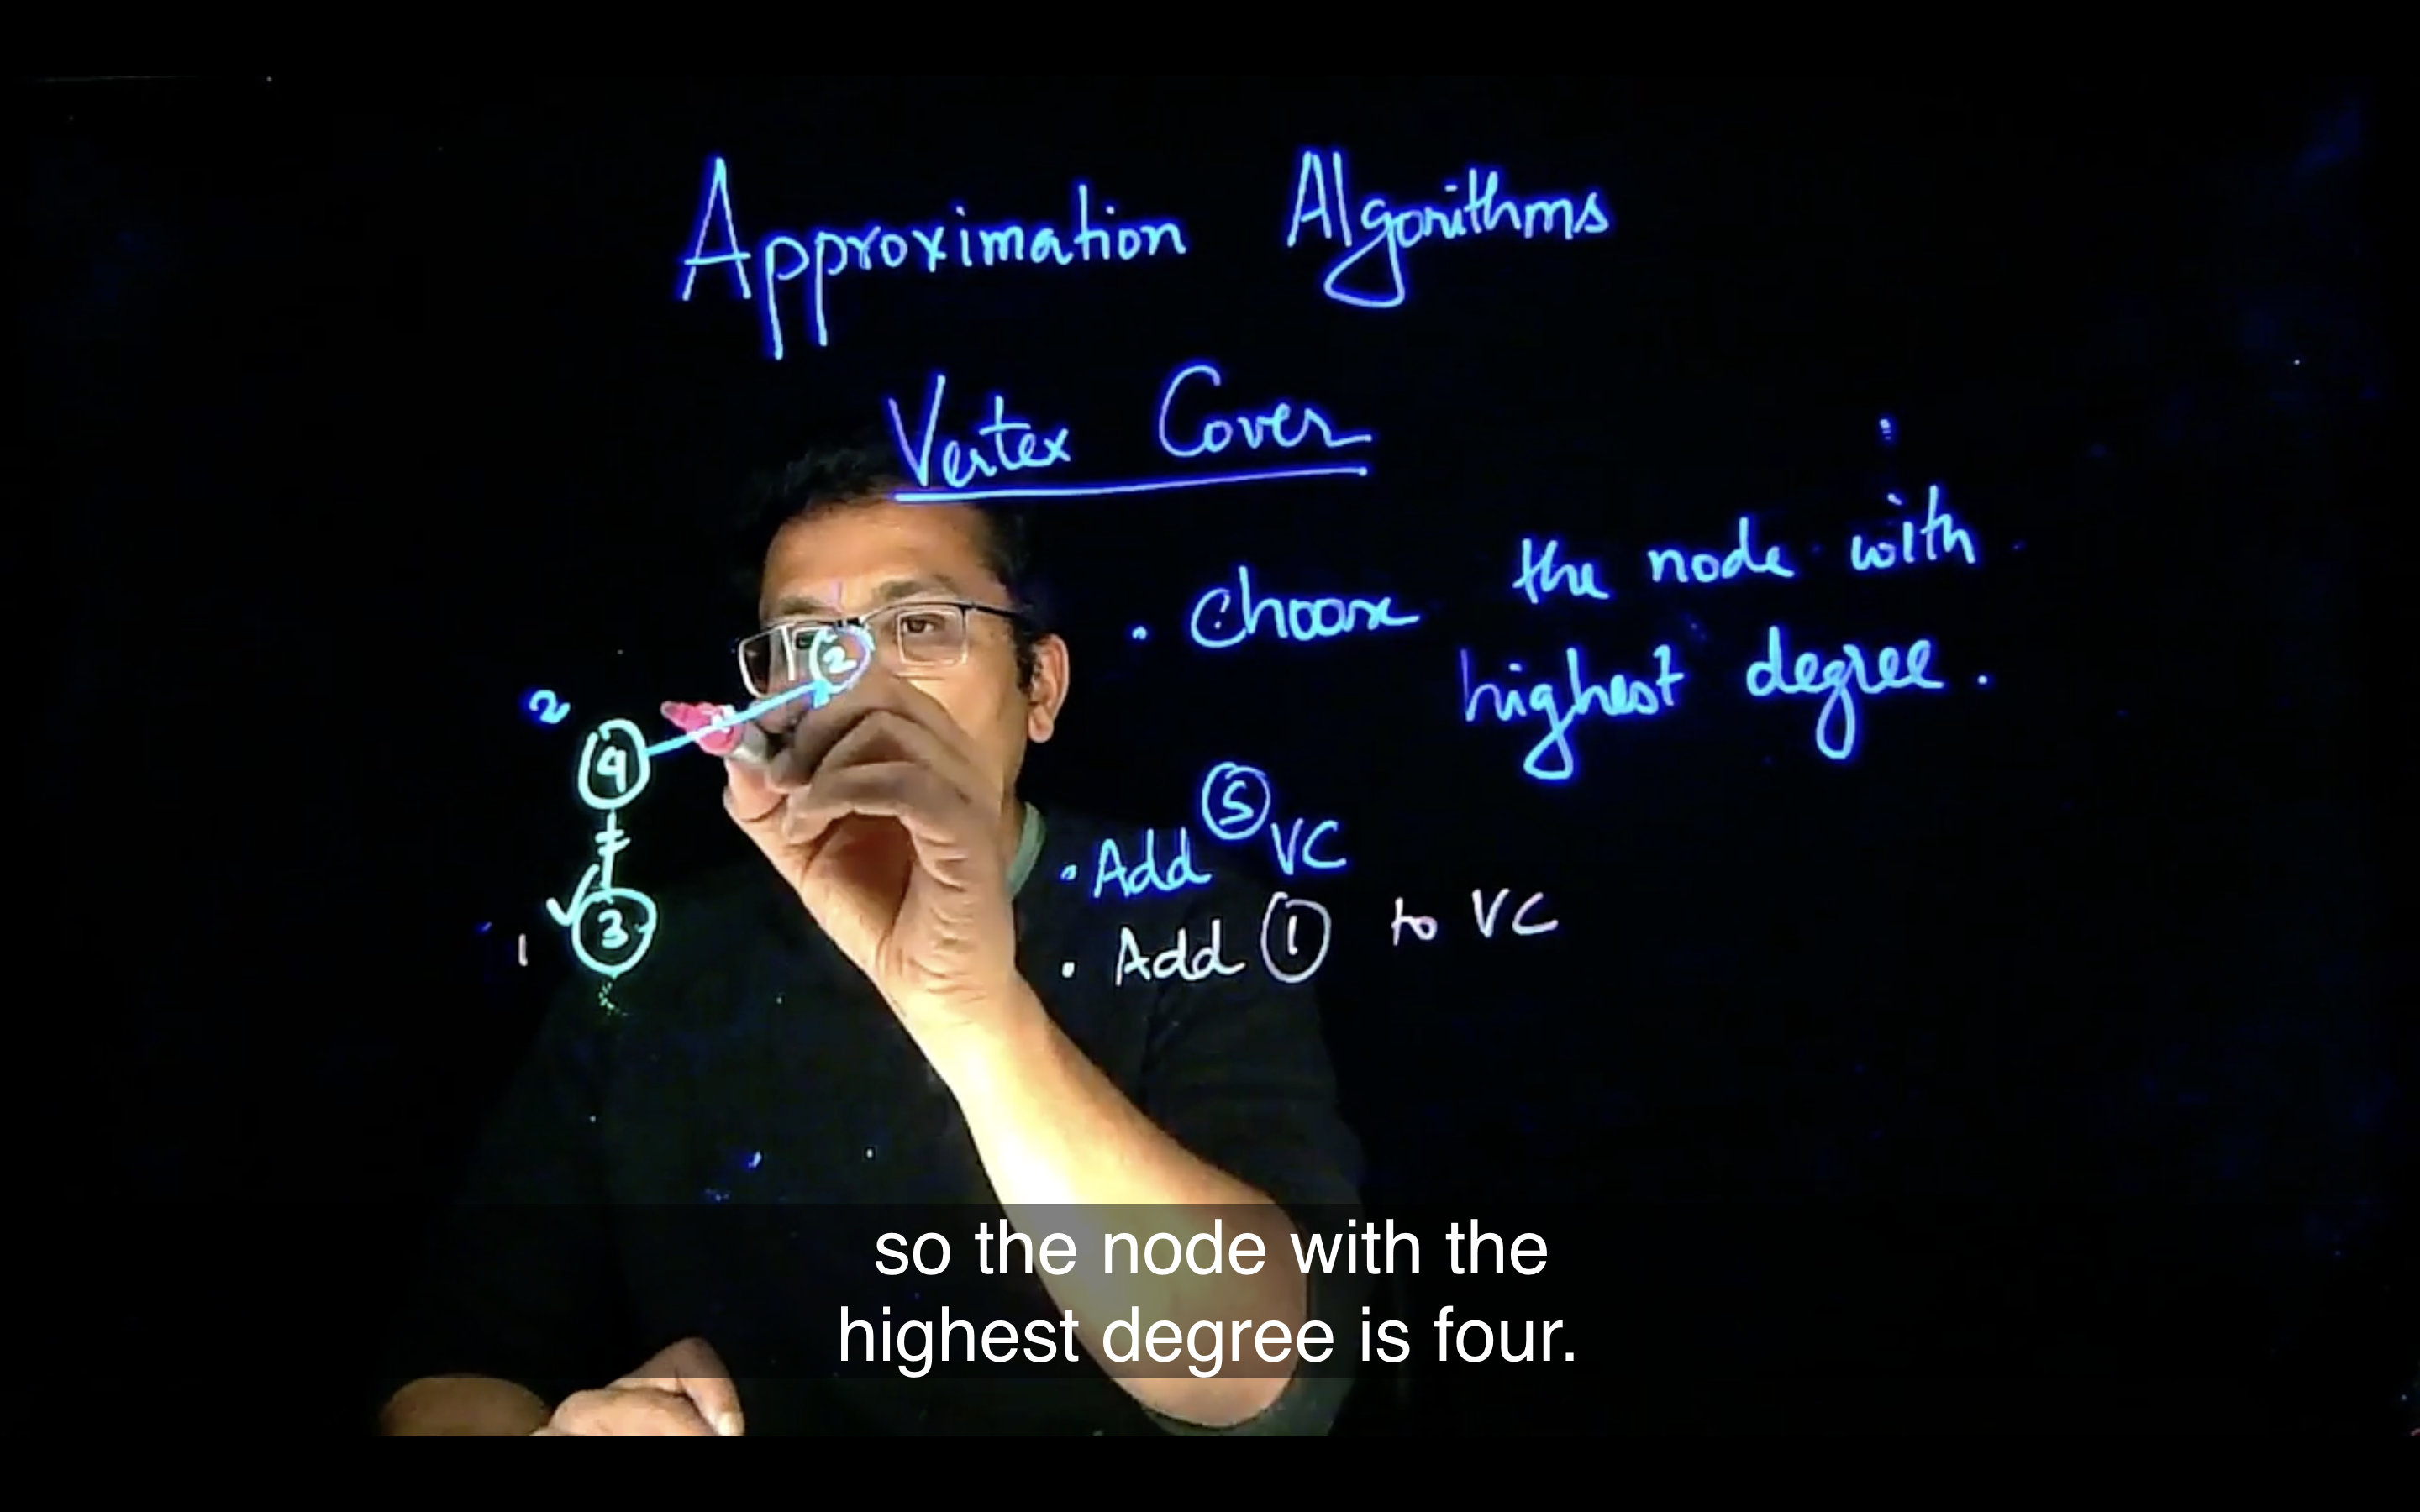 Approximation Algorithms
Vertex Cover
. Choose the node with
highest degree.
2
2
4
3
1
. Add 5 VC
. Add 1 to VC
so the node with the
highest degree is four.